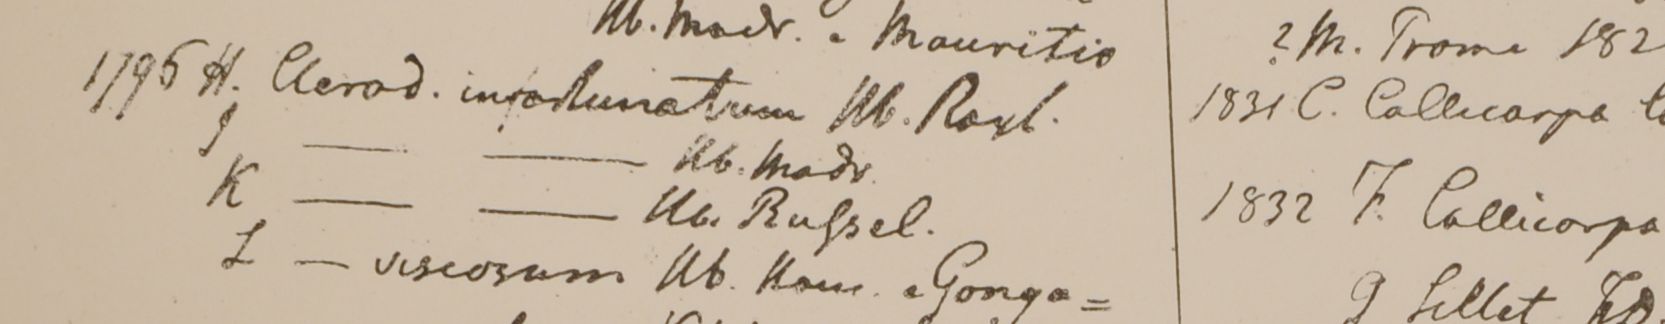 Hb. Madr. e Mauritio
1796 H. Clerod. infortunatum Hb. Roxl.
J — — Hb. Madr.
K — — Hb. Rufsel.
L — viscosum Hb. Ham. e Gonga=
? M. Trome 182
1831 C. Callicarpa
1832 F. Callicarpa
G Sillet